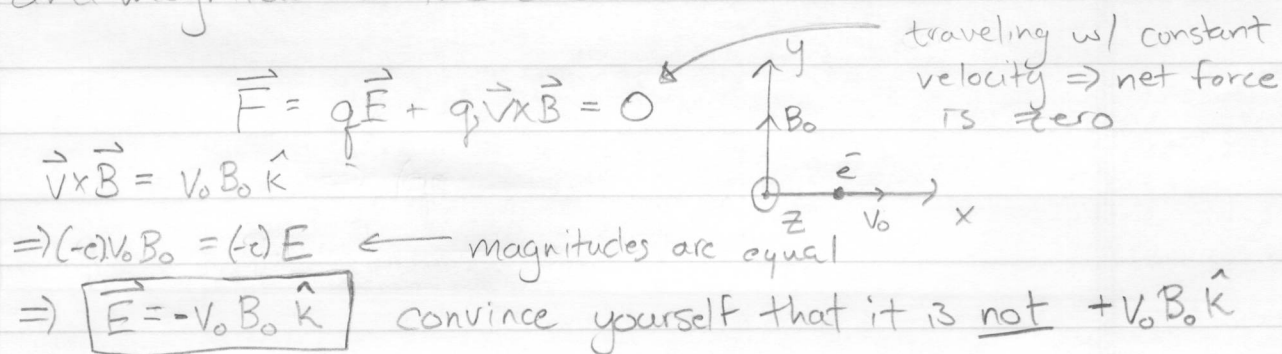 F⃗ = qE⃗ + qv⃗×B⃗ = 0
traveling w/ constant
velocity ⇒ net force
is zero
y
B₀
e⁻
z
v₀
x
v⃗×B⃗ = v₀B₀k̂
⇒(-e)v₀B₀ = (-e)E ← magnitudes are equal
⇒ E⃗ = -v₀B₀k̂ convince yourself that it is not +v₀B₀k̂